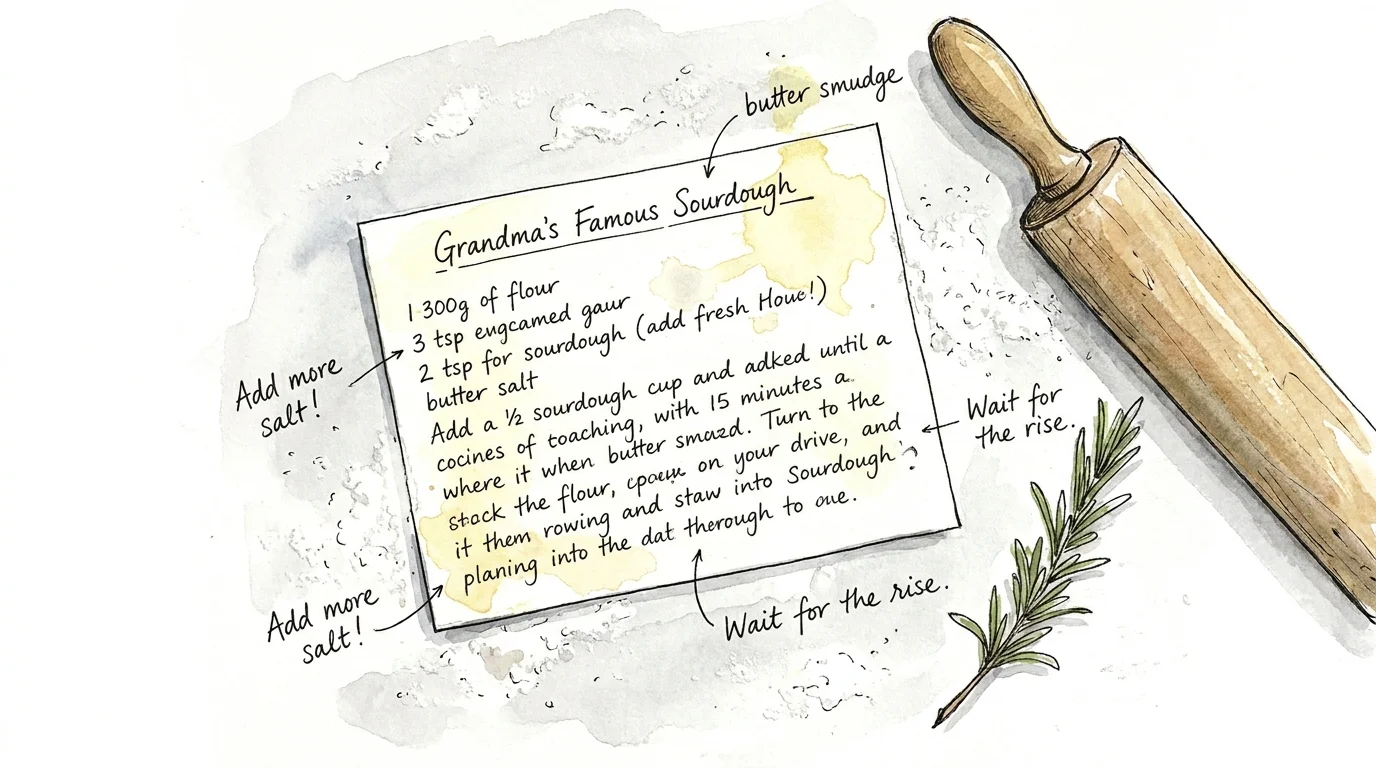 butter smudge
Grandma's Famous Sourdough
1 300g of flour
3 tsp engcamed gaur
2 tsp for sourdough (add fresh Houe!)
butter salt
Add a ½ sourdough cup and adked until a
cocines of toaching, with 15 minutes a
where it when butter smazd. Turn to the
stack the flour, on your drive, and
it them rowing and staw into Sourdough
planing into the dat therough to oue.
Add more
salt!
Wait for
the rise.
Add more
salt!
Wait for the rise.